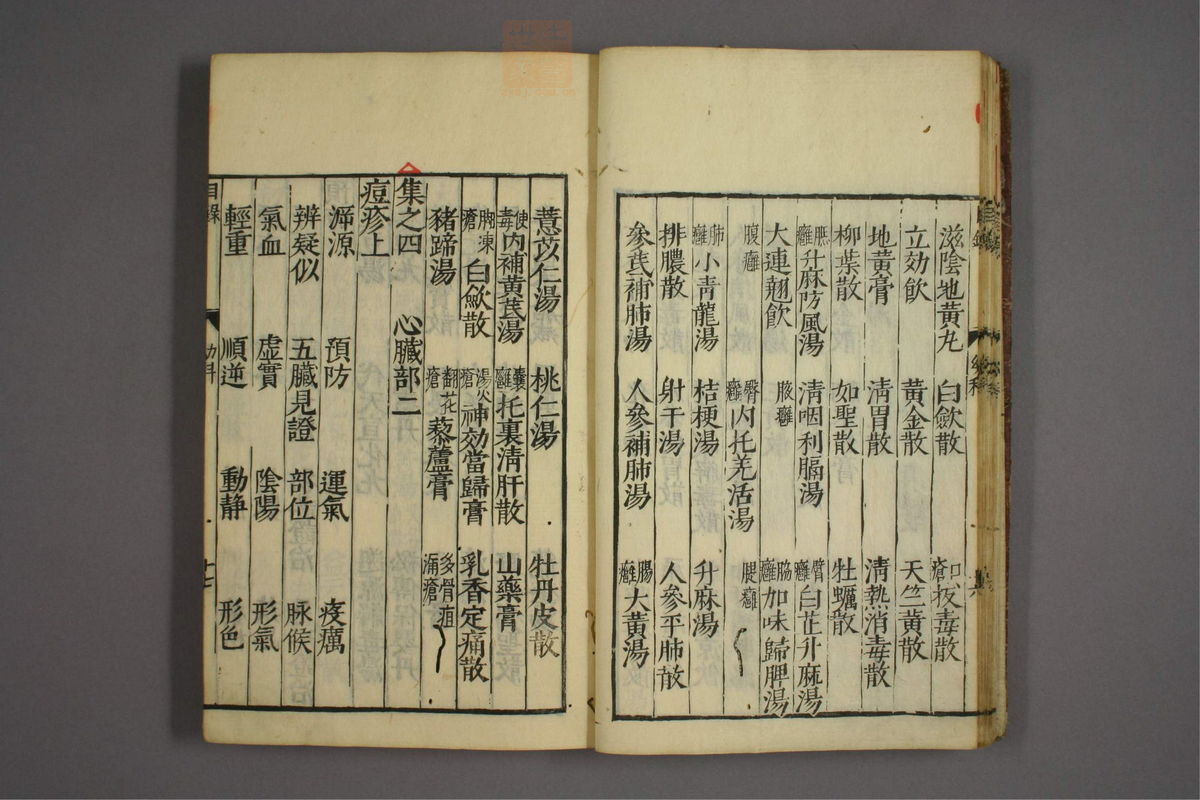 滋陰地黃丸 白歛散 口瘡拔毒散
立効飲 黃金散 天竺黃散
地黃膏 淸胃散 淸熱消毒散
柳葉散 如聖散 牡蠣散
升麻防風湯 淸咽利膈湯 臂癰白芷升麻湯
大連翹飲 腋癰 脇癰加味歸脾湯
腹癰 臀癰內托羌活湯 腿癰
肺癰小青龍湯 桔梗湯 升麻湯
排膿散 射干湯 人參平肺散
參芪補肺湯 人參補肺湯 腸癰大黃湯
薏苡仁湯 桃仁湯 牡丹皮散
便毒內補黃芪湯 囊癰托裏淸肝散 山藥膏
胸凍瘡白歛散 湯火瘡神効當歸膏 乳香定痛散
豬蹄湯 翻花瘡藜蘆膏 多骨疽漏瘡
集之四 心臟部二
痘疹上
溯源 預防 運氣 疫癘
辨疑似 五臟見證 部位 脉候
氣血 虛實 陰陽 形氣
輕重 順逆 動靜 形色
目錄 幼科 十七